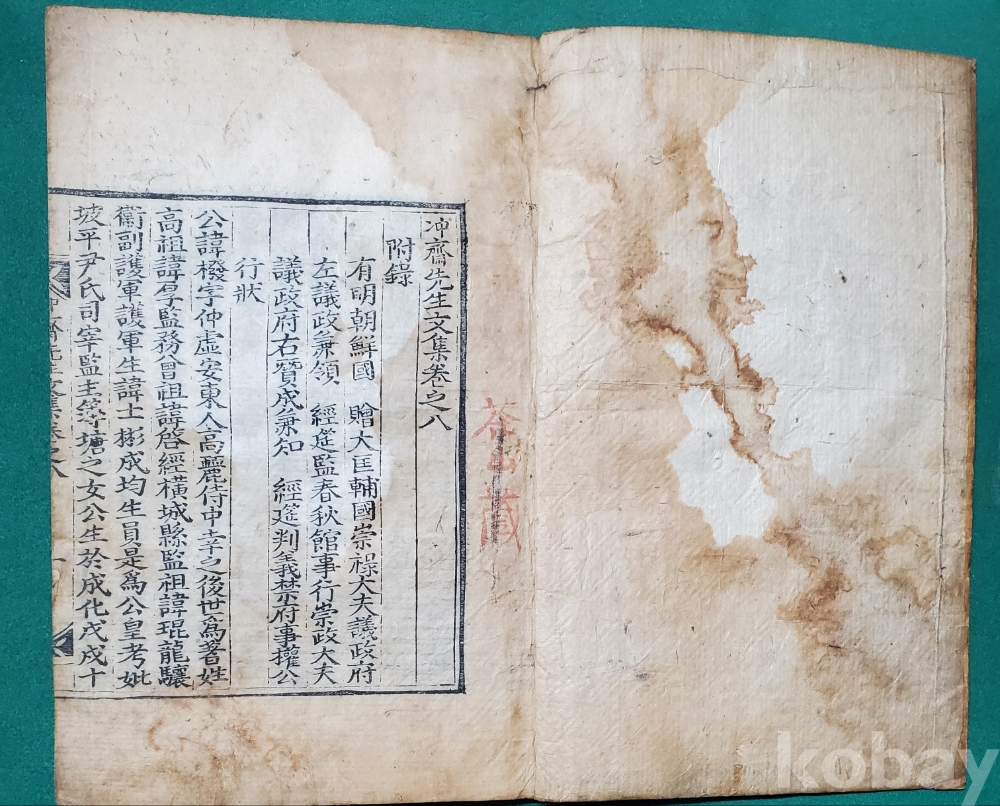 冲齋先生文集卷之八
附錄
有明朝鮮國 贈大匡輔國崇祿大夫議政府
左議政兼領 經筵監春秋館事行崇政大夫
議政府右贊成兼知 經筵判義禁府事權公
行狀
公諱橃字仲虛安東人高麗侍中幸之後世爲著姓
高祖諱厚監務曾祖諱啓經橫城縣監祖諱琨龍驤
衛副護軍護軍生諱士彬成均生員是爲公皇考妣
坡平尹氏司宰監主簿塘之女公生於成化戊戌十
冲齋先生文集卷之八
一
藏
kobay